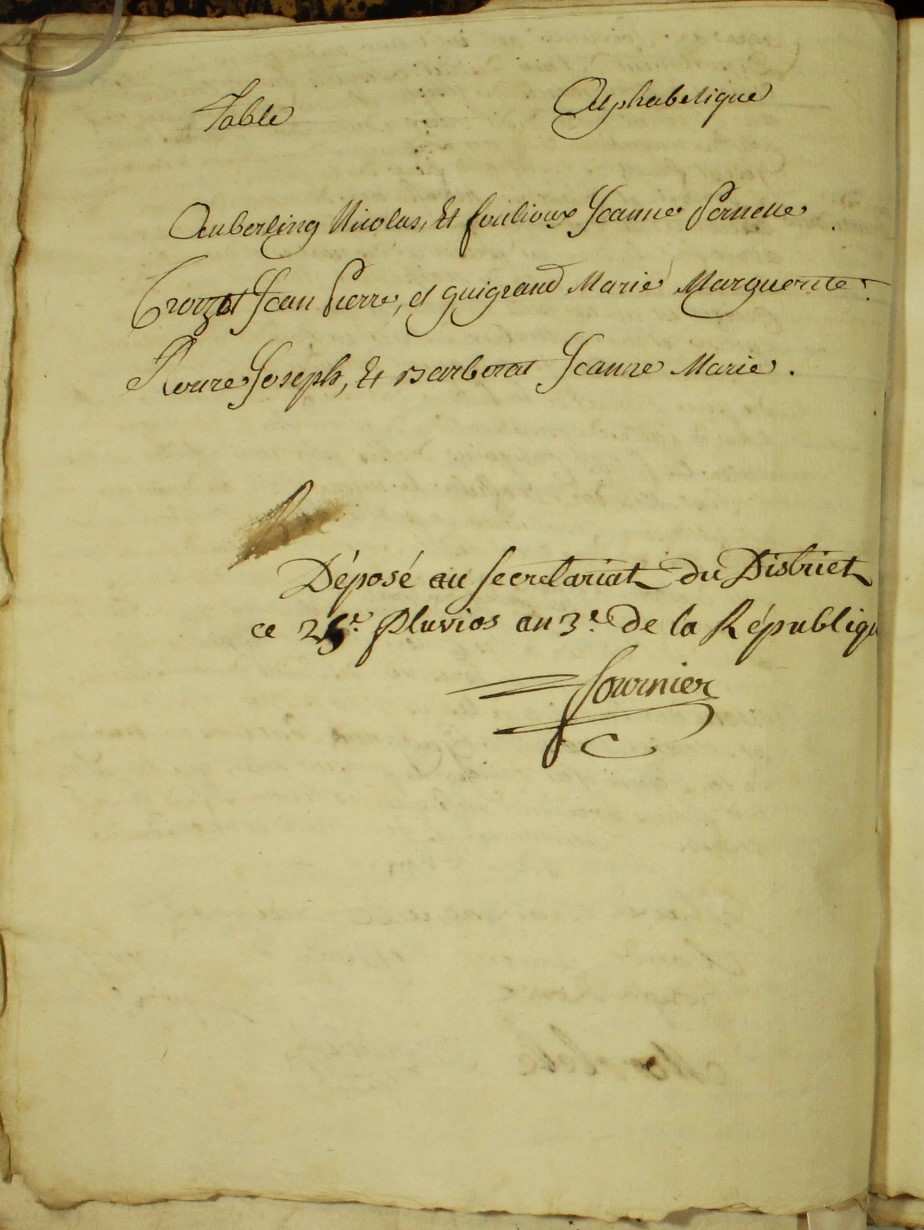 Table Alphabetique
Auberling Nicolas, Et foulioux Jeanne Pernette
Crozet Jean Pierre, et guigrand Marie Marguerite.
Roure Joseph, Et Barberat Jeanne Marie.
Déposé au Secretariat du District
ce 25.e Pluvios an 3.e de la Républiq
Fournier